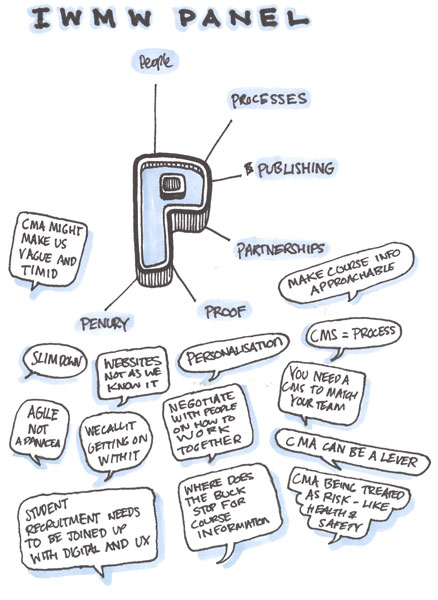 IWMW PANEL
People
PROCESSES
& PUBLISHING
PARTNERSHIPS
PROOF
PENURY
P
CMA MIGHT
MAKE US
VAGUE AND
TIMID
MAKE COURSE INFO
APPROACHABLE
SLIMDOWN
WEBSITES
NOT AS WE
KNOW IT
PERSONALISATION
CMS = PROCESS
AGILE
NOT
A PANACEA
WE CALL IT
GETTING ON
WITH IT
NEGOTIATE
WITH PEOPLE
ON HOW TO
WORK
TOGETHER
YOU NEED A
CMS TO MATCH
YOUR TEAM
CMA CAN BE A LEVER
STUDENT
RECRUITMENT NEEDS
TO BE JOINED UP
WITH DIGITAL AND UX
WHERE DOES
THE BUCK
STOP FOR
COURSE
INFORMATION
CMA BEING TREATED
AS RISK - LIKE
HEALTH &
SAFETY